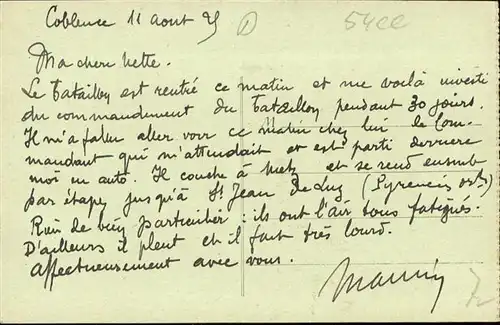 Coblence 11 Aout 25
D
54cc
Ma chere Nette.
Le Bataillon est rentré ce matin et me voilà investi
du commandement du Bataillon pendant 30 jours.
Il m'a fallu aller voir ce matin chez lui le Com-
mandant qui m'attendait et est parti derriere
moi en auto. Il couche à Metz et se rend ensuite
par étapes jusqu'à St Jean de Luz (Pyrenees
Rien de bien particulier : ils ont l'air tous fatigués.
D'ailleurs il pleut et il fait très lourd.
Affectueusement avec vous.